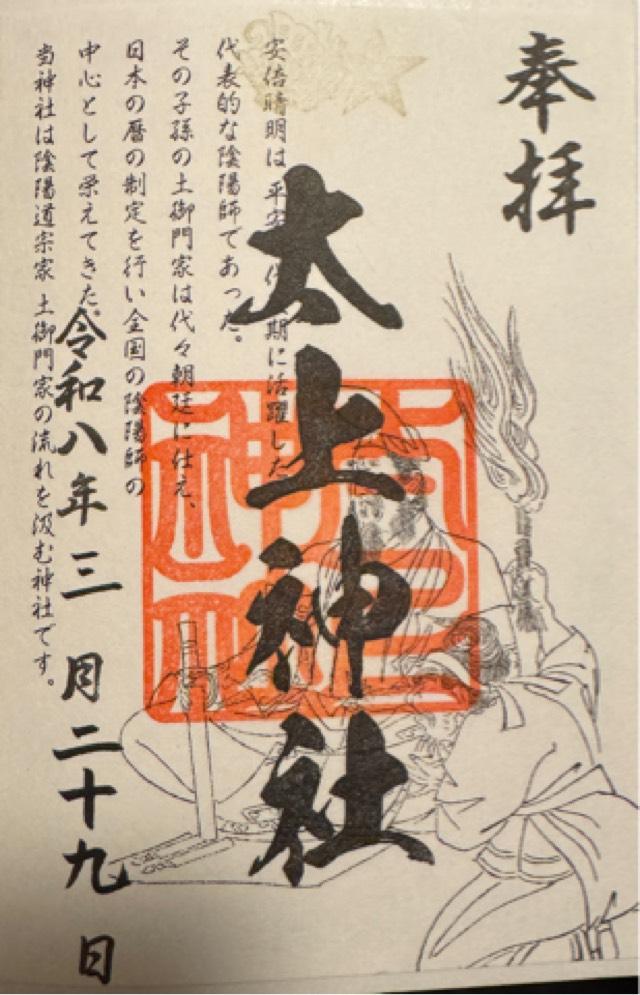 奉拝
太上神社
安倍晴明は平安 代 期に活躍した
代表的な陰陽師であった。
その子孫の土御門家は代々朝廷に仕え、
日本の暦の制定を行い全国の陰陽師の
中心として栄えてきた。
当神社は陰陽道宗家 土御門家の流れを汲む神社です。
令和八年三月二十九日